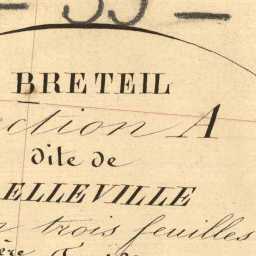 — 33 —
BRETEIL
ection A
dite de
ELLEVILLE
n trois feuilles
ère